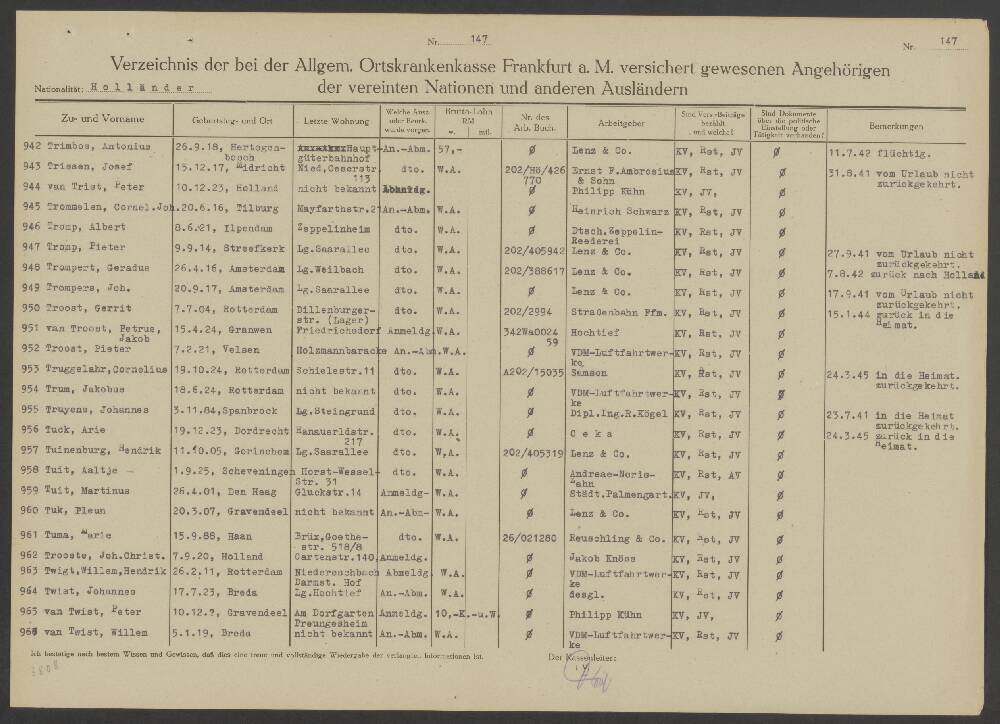 Nr. 147
Nr. 147
Verzeichnis der bei der Allgem. Ortskrankenkasse Frankfurt a. M. versichert gewesenen Angehörigen
Nationalität: Holländer
der vereinten Nationen und anderen Ausländern
Zu- und Vorname | Geburtstag- und Ort | Letzte Wohnung | Welche Ausz. oder Beurk. wurde vorgen. | Brutto-Lohn RM w. mtl. | Nr. des Arb. Buch. | Arbeitgeber | Sind Vers.-Beiträge bezahlt und welche? | Sind Dokumente über die politische Einstellung oder Tätigkeit vorhanden? | Bemerkungen
942 Trimbos, Antonius | 26.9.18, Hertogen-bosch | Haupt-güterbahnhof | An.-Abm. | 57,- | Ø | Lenz & Co. | KV, Rst, JV | Ø | 11.7.42 flüchtig.
943 Trissen, Josef | 15.12.17, Midricht | Nied, Oeserstr. 113 | dto. | W.A. | 202/H6/426 770 | Ernst F.Ambrosius & Sohn | KV, Rst, JV | Ø | 31.8.41 vom Urlaub nicht zurückgekehrt.
944 van Trist, Peter | 10.12.23, Holland | nicht bekannt | Abmeldg. | Ø | Philipp Kühn | KV, JV, | Ø
945 Trommelen, Cornel.Joh. | 20.6.16, Tilburg | Mayfarthstr.21 | An.-Abm. | W.A. | Ø | Heinrich Schwarz | KV, Rst, JV | Ø
946 Tromp, Albert | 8.6.21, Ilpendam | Zeppelinheim | dto. | W.A. | Ø | Dtsch.Zeppelin-Reederei | KV, Rst, JV | Ø
947 Tromp, Pieter | 9.9.14, Streefkerk | Lg.Saarallee | dto. | W.A. | 202/405942 | Lenz & Co. | KV, Rst, JV | Ø | 27.9.41 vom Urlaub nicht zurückgekehrt.
948 Trompert, Geradus | 26.4.16, Amsterdam | Lg.Weilbach | dto. | W.A. | 202/388617 | Lenz & Co. | KV, Rst, JV | Ø | 7.8.42 zurück nach Holland
949 Trompers, Joh. | 20.9.17, Amsterdam | Lg.Saarallee | dto. | W.A. | Ø | Lenz & Co. | KV, Rst, JV | Ø | 17.9.41 vom Urlaub nicht zurückgekehrt.
950 Troost, Gerrit | 7.7.04, Rotterdam | Dillenburger-str. (Lager) | dto. | W.A. | 202/2994 | Straßenbahn Ffm. | KV, Rst, JV | Ø | 15.1.44 zurück in die Heimat.
951 van Troost, Petrus, Jakob | 15.4.24, Granwen | Friedrichsdorf | Anmeldg. | W.A. | 342Wa0024 59 | Hochtief | KV, Rst, JV | Ø
952 Troost, Pieter | 7.2.21, Velsen | Holzmannbaracke | An.-Abm. | W.A. | Ø | VDM-Luftfahrtwer-ke | KV, Rst, JV | Ø
953 Truggelahr,Cornelius | 19.10.24, Rotterdam | Schielestr.11 | dto. | W.A. | A202/15035 | Samson | KV, Rst, JV | Ø | 24.3.45 in die Heimat. zurückgekehrt.
954 Trum, Jakobus | 18.6.24, Rotterdam | nicht bekannt | dto. | W.A. | Ø | VDM-Luftfahrtwer-ke | KV, Rst, JV | Ø
955 Truyens, Johannes | 3.11.84,Spanbrock | Lg.Steingrund | dto. | W.A. | Ø | Dipl.Ing.R.Kögel | KV, Rst, JV | Ø | 23.7.41 in die Heimat zurückgekehrt.
956 Tuck, Arie | 19.12.23, Dordrecht | Hanauerldstr. 217 | dto. | W.A. | Ø | Ceka | KV, Rst, JV | Ø | 24.3.45 zurück in die Heimat.
957 Tuinenburg, Hendrik | 11.10.05, Gorinchem | Lg.Saarallee | dto. | W.A. | 202/405319 | Lenz & Co. | KV, Rst, JV | Ø
958 Tuit, Aaltje | 1.9.25, Scheveningen | Horst-Wessel-Str. 31 | dto. | W.A. | Ø | Andreae-Noris-Zahn | KV, Rst, AV | Ø
959 Tuit, Martinus | 26.4.01, Den Haag | Gluckstr.14 | Anmeldg- | W.A. | Ø | Städt.Palmengart. | KV, JV, | Ø
960 Tuk, Pleun | 20.3.07, Gravendeel | nicht bekannt | An.-Abm- | W.A. | Ø | Lenz & Co. | KV, Rst, JV | Ø
961 Tuma, Marie | 15.9.88, Haan | Brüx,Goethe-str. 518/8 | dto. | W.A. | 26/021280 | Reuschling & Co. | KV, Rst, JV | Ø
962 Trooste, Joh.Christ. | 7.9.20, Holland | Gartenstr.140, | Anmeldg. | Ø | Jakob Knöss | KV, Rst, JV | Ø
963 Twigt,Willem,Hendrik | 26.2.11, Rotterdam | Niedereschbach Darmst. Hof | Abmeldg | W.A. | Ø | VDM-Luftfahrtwer-ke | KV, Rst, JV | Ø
964 Twist, Johannes | 17.7.23, Breda | Lg.Hochtief | An.-Abm. | W.A. | Ø | desgl. | KV, Rst, JV | Ø
965 van Twist, Peter | 10.12.?, Gravendeel | Am Dorfgarten Preungesheim | Anmeldg. | 10,-K.-u.W. | Ø | Philipp Kühn | KV, JV, | Ø
966 van Twist, Willem | 5.1.19, Breda | nicht bekannt | An.-Abm. | W.A. | Ø | VDM-Luftfahrtwer-ke | KV, Rst, JV | Ø
Ich bestätige nach bestem Wissen und Gewissen, daß dies eine treue und vollständige Wiedergabe der verlangten Informationen ist.
Der Kassenleiter:
I.V.
3808